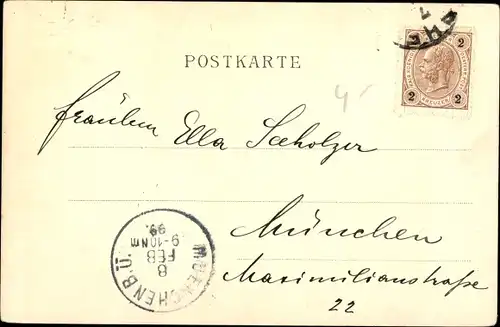 POSTKARTE
2 2
KREUZER
2 2
4
Fräulein Ella Seeholzer
München
Maximilianstraße
22
MUENCHEN B.Ü.
8
FEB
9-10 Nm
99.